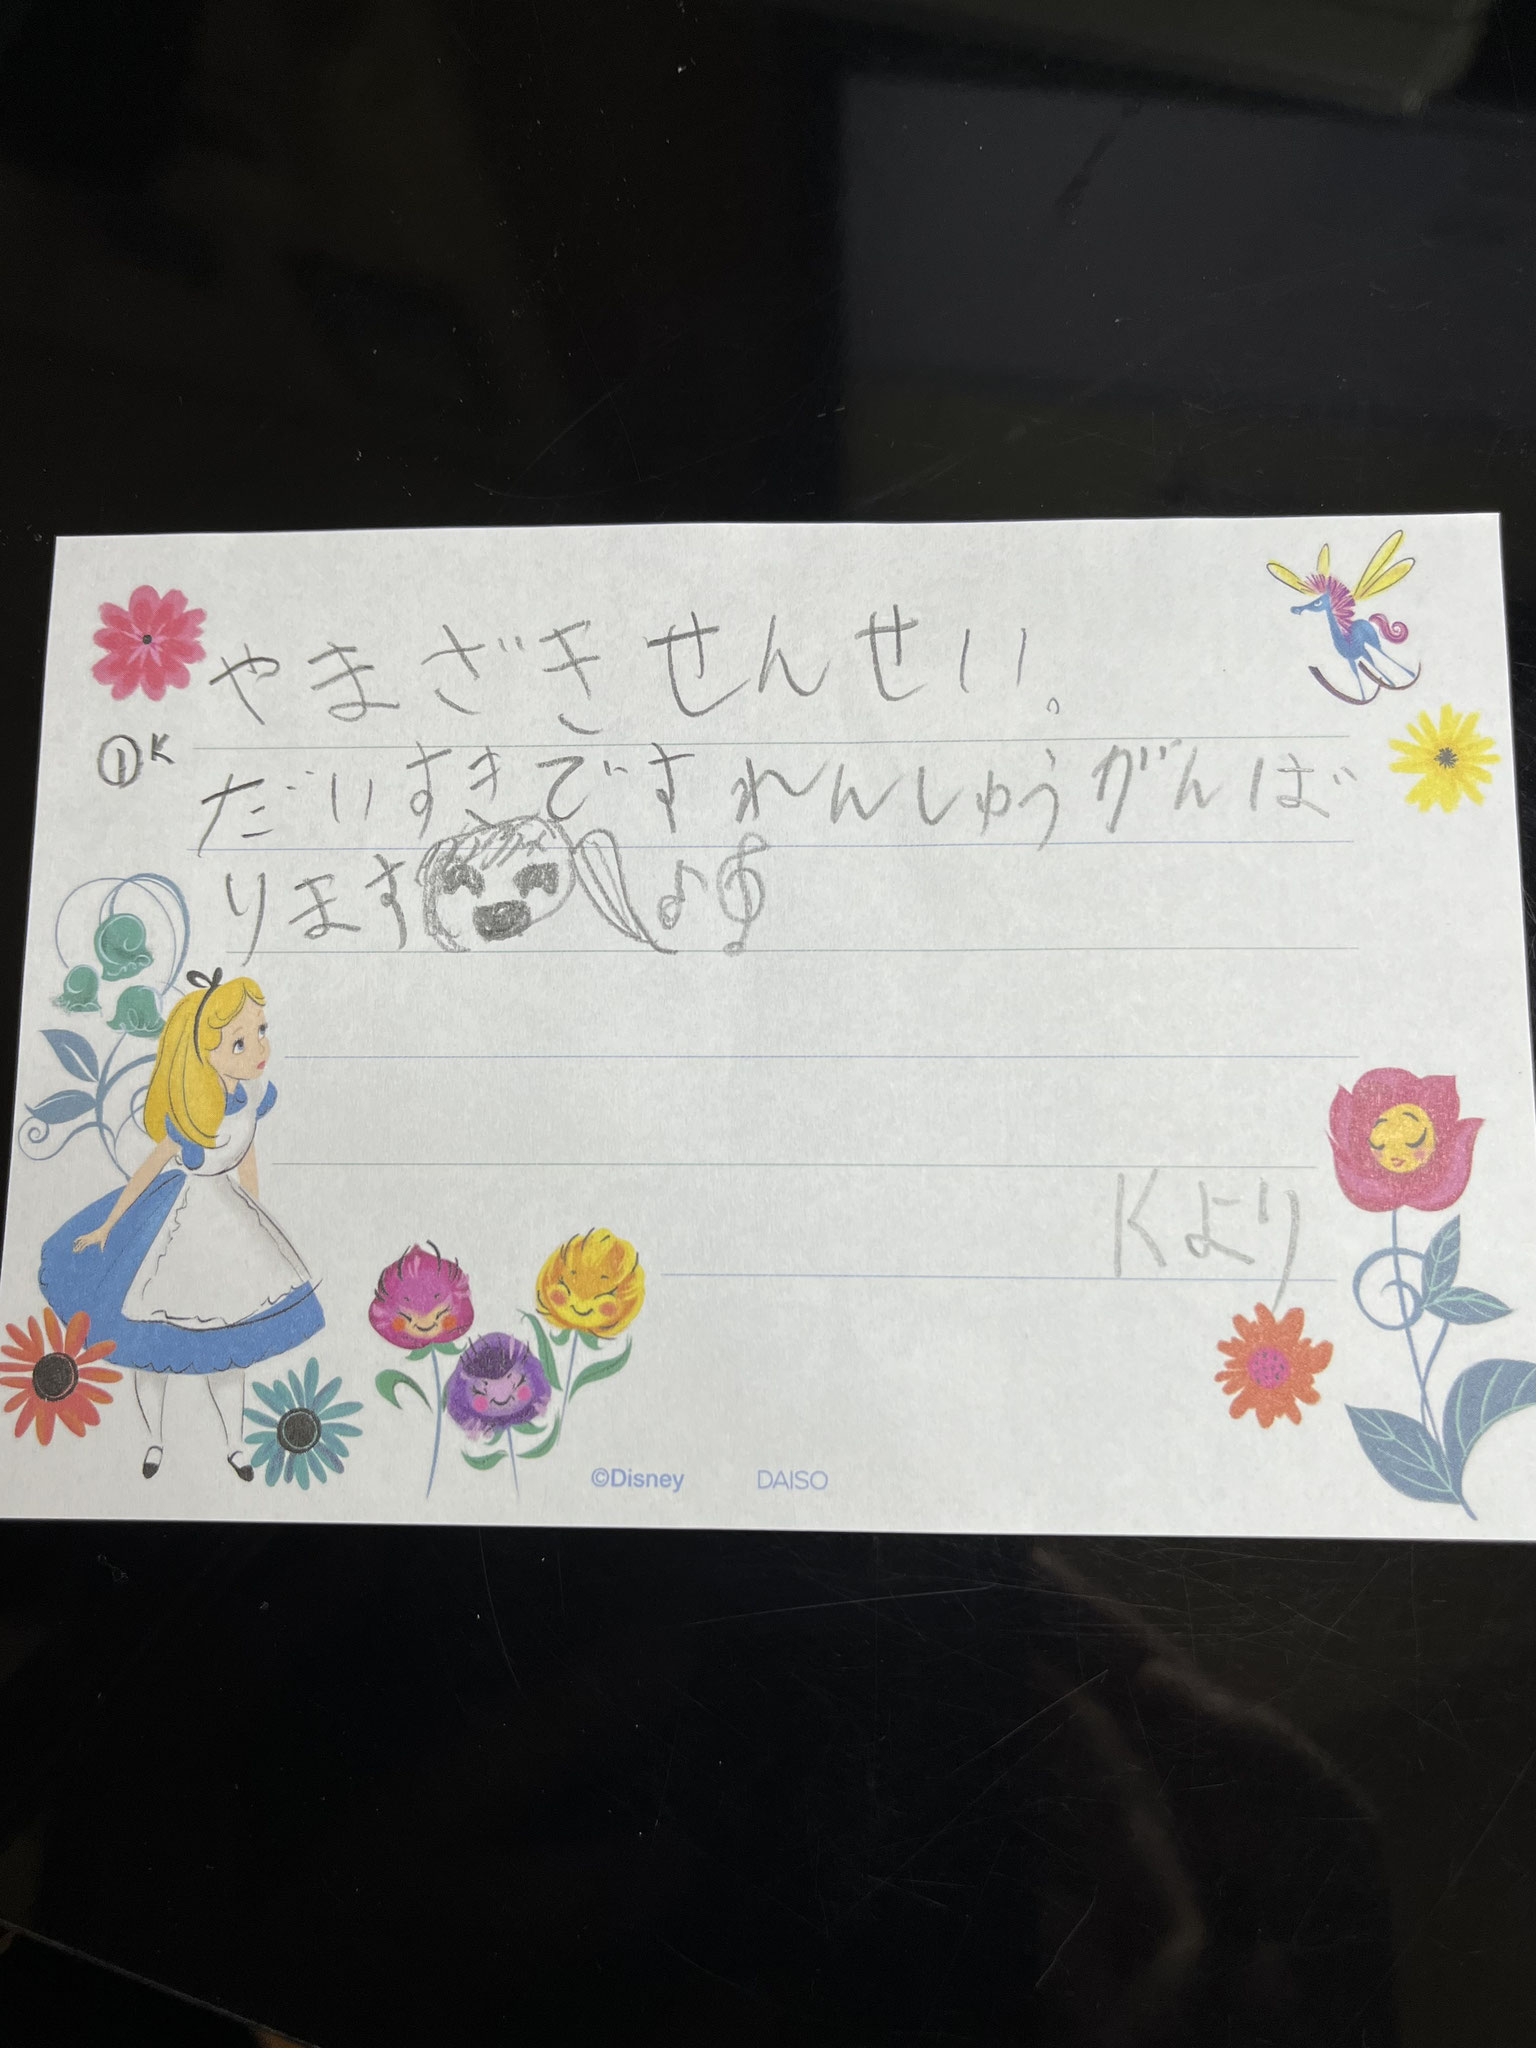 やまざきせんせい。
①K
だいすきですれんしゅうがんば
ります♪
Kより
©Disney DAISO